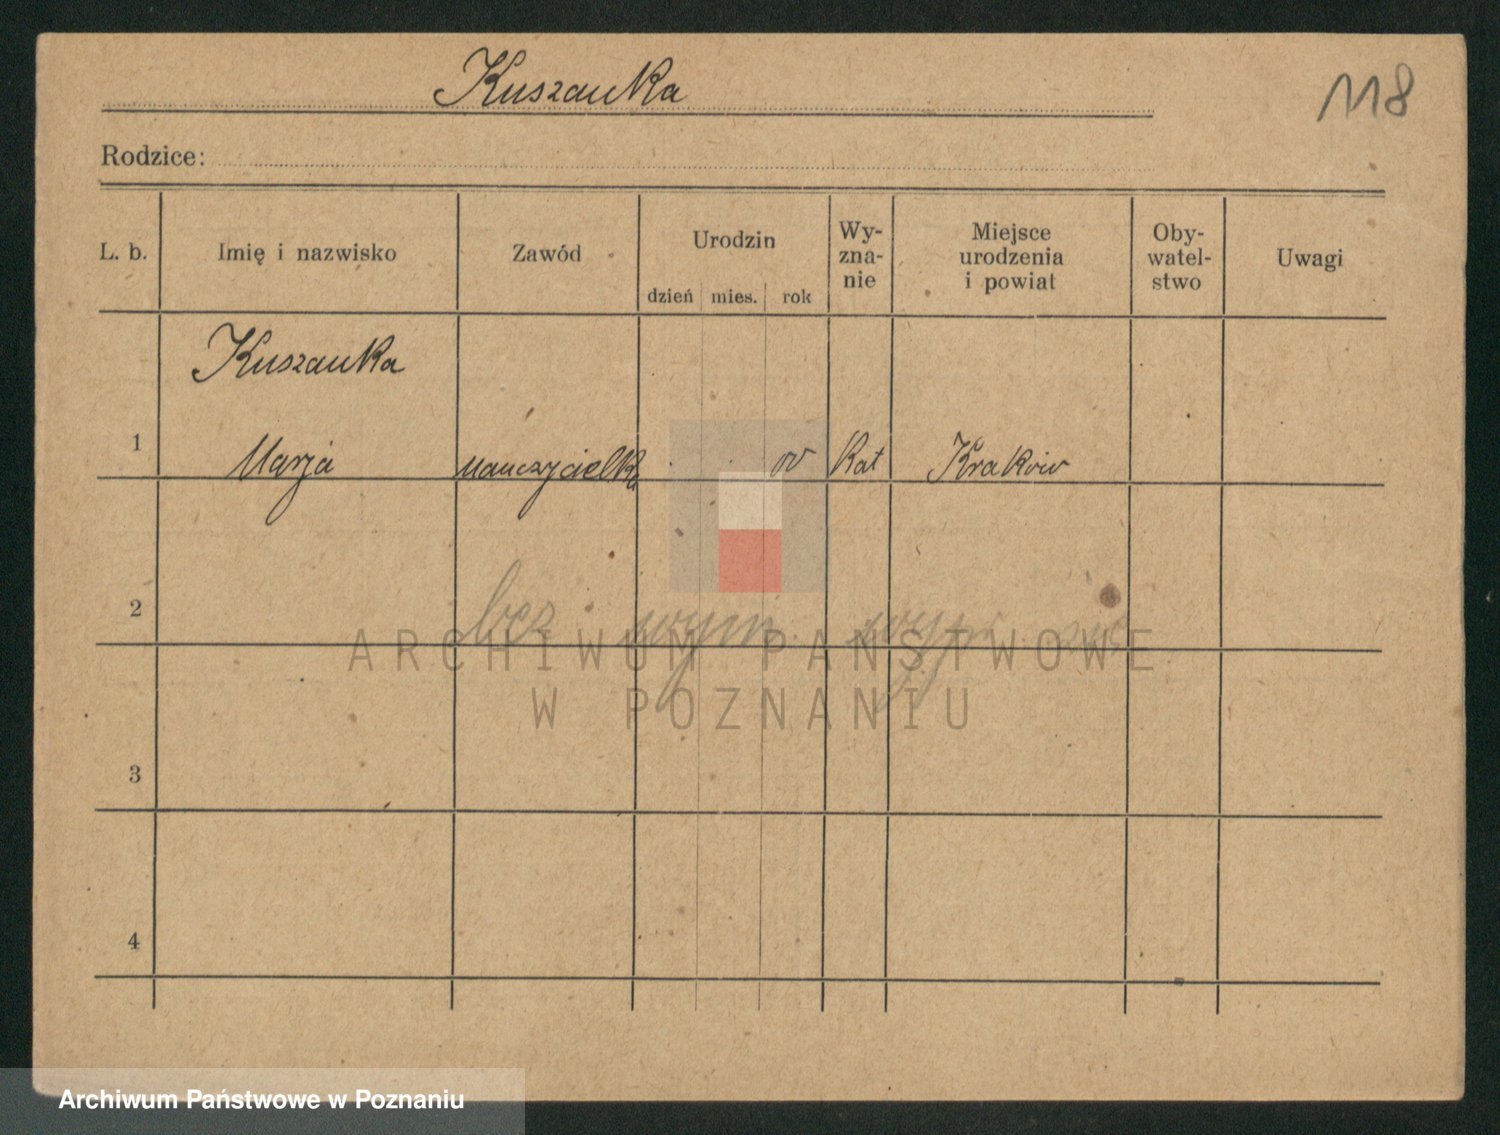 Kuszanka
118
Rodzice:
L. b.
Imię i nazwisko
Zawód
Urodzin
dzień mies. rok
Wy-
zna-
nie
Miejsce
urodzenia
i powiat
Oby-
watel-
stwo
Uwagi
Kuszanka
1 Marja nauczycielka Kat Kraków
2
bez wym.
3
4
ARCHIWUM PAŃSTWOWE
W POZNANIU
Archiwum Państwowe w Poznaniu